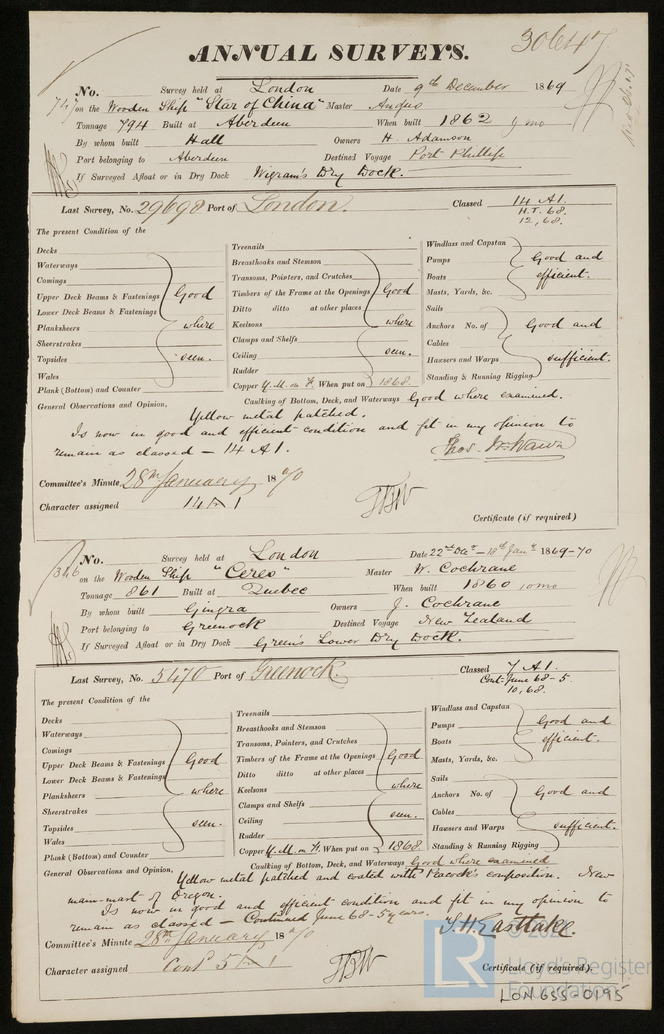 30647
ANNUAL SURVEYS.
No. Survey held at London Date 9th December 1869
747 on the Wooden Ship "Star of China" Master Angus
Tonnage 794 Built at Aberdeen When built 1862 9 mo
By whom built Hall Owners H. Adamson
Port belonging to Aberdeen Destined Voyage Port Phillip
If Surveyed Afloat or in Dry Dock Wigram's Dry Dock.
Last Survey, No. 29698 Port of London. Classed 14 A1.
H.T. 68.
12, 68.
The present Condition of the
Decks
Waterways
Comings
Upper Deck Beams & Fastenings Good
Lower Deck Beams & Fastenings
Planksheers where
Sheerstrakes
Topsides seen.
Wales
Plank (Bottom) and Counter
Treenails
Breasthooks and Stemson
Transoms, Pointers, and Crutches
Timbers of the Frame at the Openings Good
Ditto ditto at other places
Keelsons where
Clamps and Shelfs
Ceiling seen.
Rudder
Copper Y.M. on F. When put on 1868
Windlass and Capstan
Pumps Good and
Boats efficient.
Masts, Yards, &c.
Sails
Anchors No. of Good and
Cables
Hawsers and Warps sufficient.
Standing & Running Rigging
General Observations and Opinion, Caulking of Bottom, Deck, and Waterways Good where examined.
Yellow metal patched.
Is now in good and efficient condition and fit in my opinion to
remain as classed – 14 A1.
Committee's Minute 28th January 1870
Character assigned 14 A 1
Certificate (if required)
No. Survey held at London Date 22nd Dec – 18th Jany 1869-70
on the Wooden Ship "Ceres" Master W. Cochrane
Tonnage 861 Built at Quebec When built 1860 10 mo
By whom built Gingra Owners J. Cochrane
Port belonging to Greenock Destined Voyage New Zealand
If Surveyed Afloat or in Dry Dock Green's Lower Dry Dock.
Last Survey, No. 5470 Port of Greenock. Classed 7 A1.
Cont. June 68-5
10, 68.
The present Condition of the
Decks
Waterways
Comings
Upper Deck Beams & Fastenings Good
Lower Deck Beams & Fastenings
Planksheers where
Sheerstrakes
Topsides seen.
Wales
Plank (Bottom) and Counter
Treenails
Breasthooks and Stemson
Transoms, Pointers, and Crutches
Timbers of the Frame at the Openings Good
Ditto ditto at other places
Keelsons where
Clamps and Shelfs
Ceiling seen.
Rudder
Copper Y.M. on F. When put on 1868
Windlass and Capstan
Pumps Good and
Boats efficient.
Masts, Yards, &c.
Sails
Anchors No. of Good and
Cables
Hawsers and Warps sufficient.
Standing & Running Rigging
General Observations and Opinion, Caulking of Bottom, Deck, and Waterways Good where examined
Yellow metal patched and coated with Peacock's composition. New
main-mast of Oregon.
Is now in good and efficient condition and fit in my opinion to
remain as classed – Continued June 68-5 years.
T. H. Eastlake.
Committee's Minute 28th January 1870
Character assigned Cont 5 A 1
Certificate (if required)
LR
Lloyd's Register
Foundation
LON655-0195